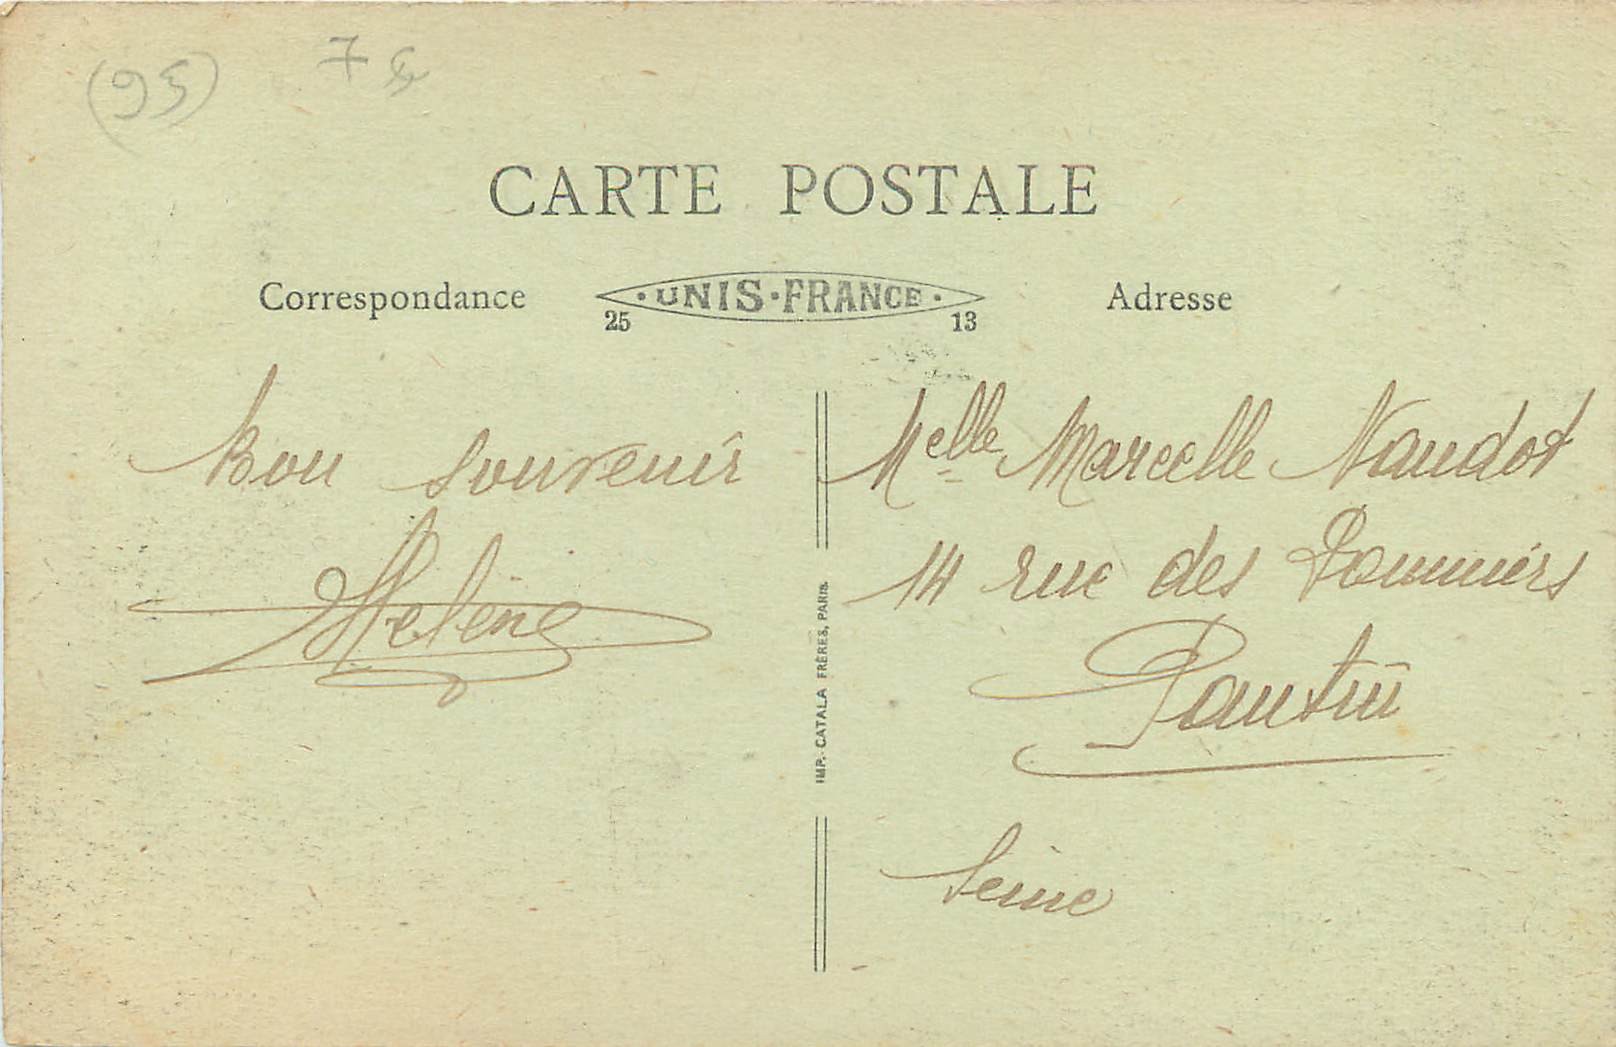 (95)
7
CARTE POSTALE
Correspondance
· UNIS · FRANCE ·
25
13
Adresse
Bon souvenir
Helène
IMP. CATALA FRÈRES, PARIS.
Melle Marcelle Naudot
14 rue des Pommiers
Pantin
Seine